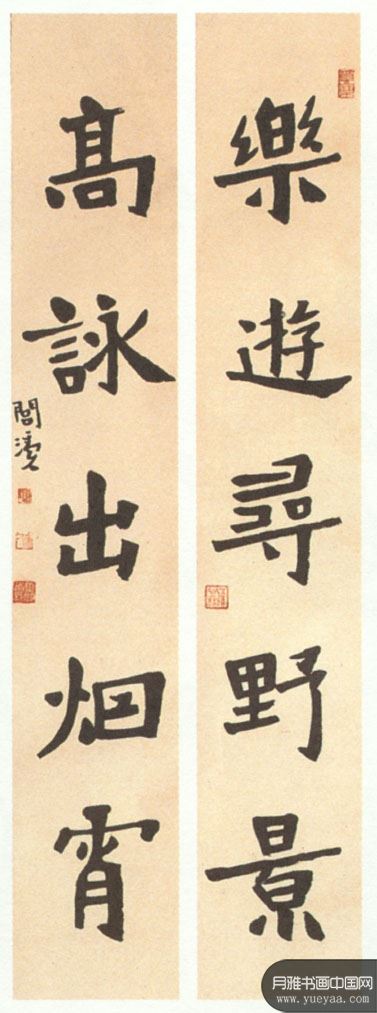 樂遊尋野景
高詠出烟霄
月雅书画中国网
www.yueyaa.com